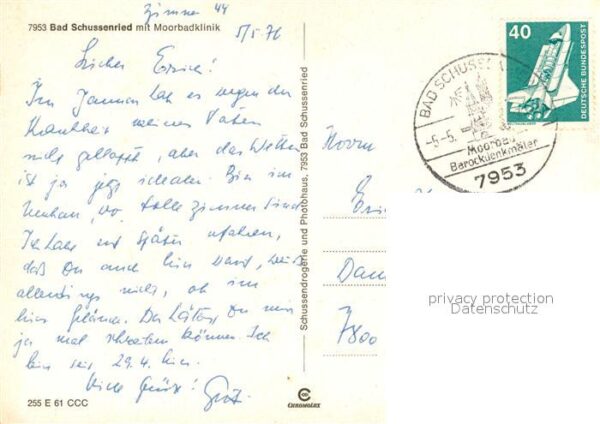 Zimmer 44
7953 Bad Schussenried mit Moorbadklinik
5/5 76
Lieber Erich!
Im Januar hat es wegen der
Krankheit meines Vaters
nicht geklappt, aber das Wetter
ist ja jetzt ideal. Bin im
Neubau, wo tolle Zimmer sind.
Ich habe erst später erfahren,
daß Du auch hier warst, weiß
allerdings nicht, ob im
Du mir
ja mal schreiben können. Ich
bin seit 29.4. hier.
Viele Grüße!
255 E 61 CCC
Schussendrogerie und Photohaus, 7953 Bad Schussenried
CHROMOLUX
Herrn
7800
40
DEUTSCHE BUNDESPOST
BAD SCHUSSEN
-5.-5.
Moorbad
Barockdenkmäler
7953
privacy protection
Datenschutz